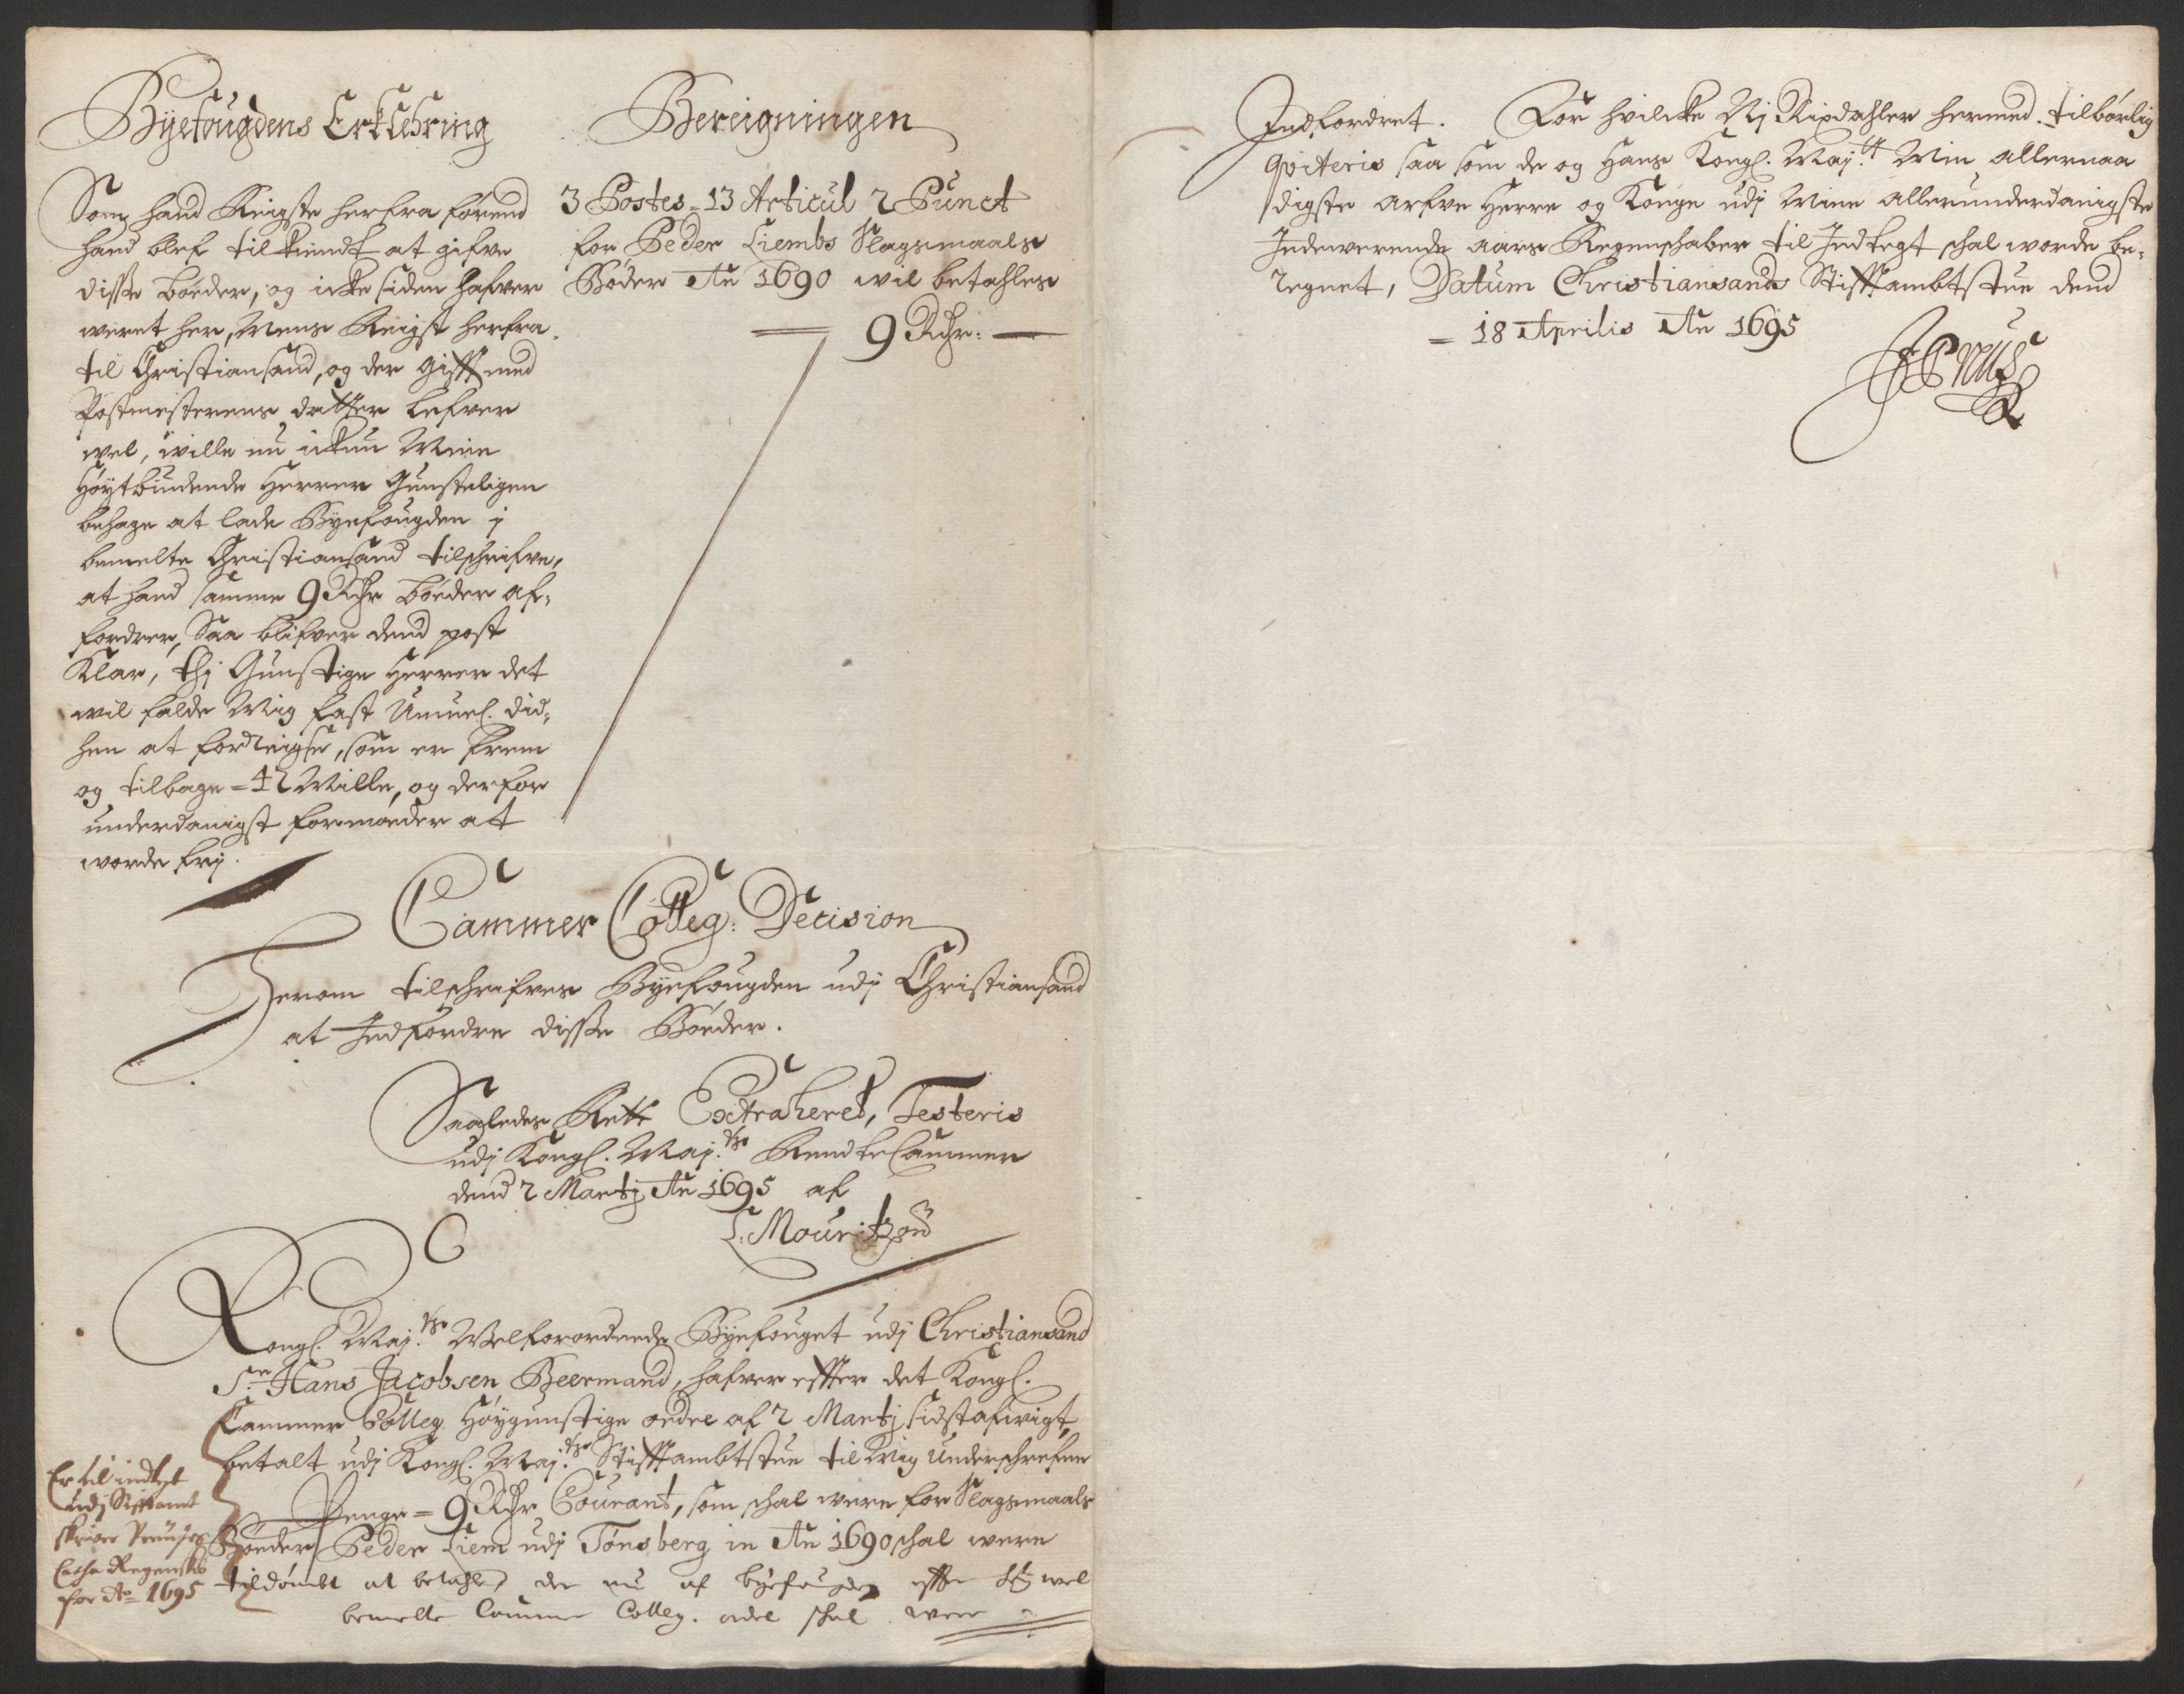 Byefougdens Erklehring
Som hand Reigste herfra førend
hand blef tilkiendt at gifve
disse bøeder, og icke siden hafver
weret her, Mens Reigst herfra
til Christiansand, og der gifft med
Postmesterens datter lefver
vel, wille nu ickun Mine
Høytbiudende Herrer Gunsteligen
behage at lade Byefougden i
bemelte Christiansand tilschrifve,
at hand samme 9 Rdr bøeder af-
fordrer, Saa blifver dend post
Klar, thj Gunstige Herrer det
wil falde Mig fast Umuel. did-
hen at forreigse, som er frem
og tilbage = 42 Mille, og derfor
underdanigst formoeder at
worde frj.
Bereigningen
3 Postes = 13 Articul 2 Punct
for Peder Liembs Slagsmaals
Bøder Ao 1690 wil betahles
9 Rdr: —
Cammer Colleg: Decision
Herom tilschrifves Byefougden udj Christiansand
at Indfordre disse Bøeder.
Saaledes Rett Extraheret, Testeris
udj Kongl. Maj.tts Rendtecammer
dend 2 Martj Ao 1695 af
L: Mouritzon
Kongl. Maj.tts Welforordnede Byefouget udj Christiansand
Sr. Hans Jacobsen Beermand, hafver effter det Kongl.
Cammer Colleg. Høygunstige ordre af 2 Martj sidstafvigt,
betalt udj Kongl. Maj.tts Stifftambtstue til Mig Underschrefne
Penge = 9 Rdr Courant, som schal were for Slagsmaals
Bøeder Peder Liem udj Tønsberg in Ao 1690 schal were
tildømbt at betahle, der nu af byefougden effter høy wel
bemelte Cammer Colleg. ordre schal were
Er til indtegt
udj Stiftamt
skriver Prenses
Cassa Regenskb
for Ao 1695
Indfordret. For hvilcke Nj Rixdahler hermed tilbørlig
qviteris saa som de og Hans Kongl. Maj.tt Min allernaa
digste arfve Herre og Konge udj Mine allerunderdanigste
Indeverende aars Regenschaber til Indtegt schal worde be-
regnet, Datum Christiansands Stifftambtstue dend
= 18 Aprilis Ao 1695